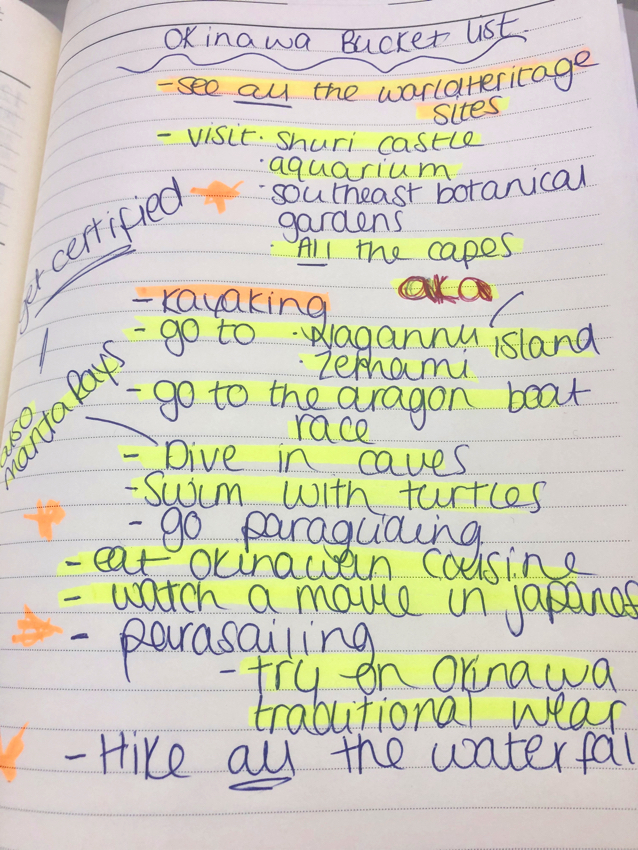 Okinawa Bucket List.
- see all the world Heritage
sites
- visit · shuri castle
· aquarium
· southeast botanical
gardens
· All the capes
get certified
aka
- kayaking
- go to · Nagannu island
· Zemami
- go to the dragon boat
race
also
manta Rays
- Dive in caves
- Swim with turtles
- go paraguiding
- eat okinawan cousine
- watch a movie in japanes
- parasailing
- try on Okinawa
traditional wear
- Hike all the waterfal